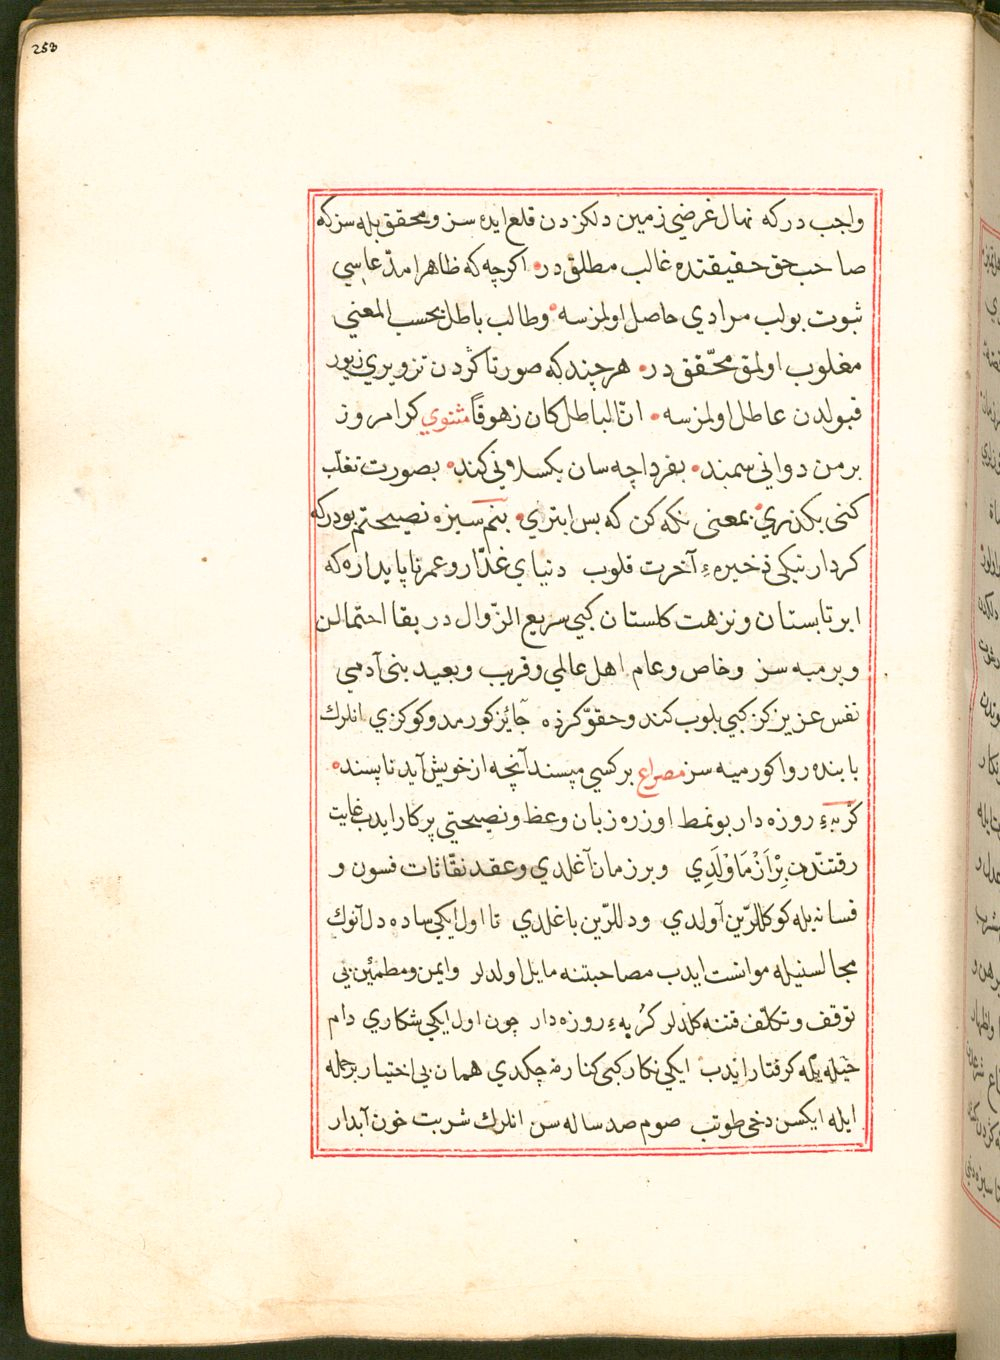 253
واجب دركه نهال غرضي زمين دلكزدن قلع ايده سز ومحقق بله سزكه
صاحب حق حقيقتده غالب مطلق در اكرچه كه ظاهرا مدّعاسي
ثبوت بولب مرادي حاصل اولمزسه وطالب باطل بحسب المعني
مغلوب اولمق محقّق در هرچندكه صورتا كردن تزويري زيور
قبولدن عاطل اولمزسه انّ الباطل كان زهوقاً مثنوي كرامروز
برمن دواني سمند بفردا چه سان بكسلاني كند بصورت تغلب
كني بكذري بمعنى نكه كن كه بس ابتري بنم سيزه نصيحتم بودركه
كردار نيكى ذخيرهء آخرت قلوب دنياي غدّار وعمر ناپايداره كه
ابر تابستان ونزهت كلستان كبي سريع الزّوال در بقا احتمالن
ويرميه سز وخاص وعام اهل عالمي وقريب وبعيد بني آدمي
نفس عزيزكز كبي بلوب كند وحقوكزده جائز كورمدوكوكزي انلرك
بابنده روا كورميه سز مصراع بركسي مپسند آنچه از خويش آيد ناپسنده
كربهء روزه دار بو نمط اوزره زبان وعظ ونصيحتي پركار ايدب غايت
رقتندن بِرْاَزْمَاوْلَدِي وبرزمان آغلدي وعقد نفّاثات فسون و
فسانه يله كوكللرين آولدي ودللرّين باغلدي تا اول ايكي ساده دل آنوك
مجالسنيله موانست ايدب مصاحبتنه مايل اولدلر وايمن ومطمئن بي
توقف وتكلّف قتنه كلدلر كربهء روزه دار چون اول ايكي شكاري دام
حيله يله كرفتار ايدب ايكي نكار كبى كنارنه چكدي همان بي اختيار برحمله
ايله ايكسن دخى طوتب صوم صد ساله سن انلرك شربت خون آبدار